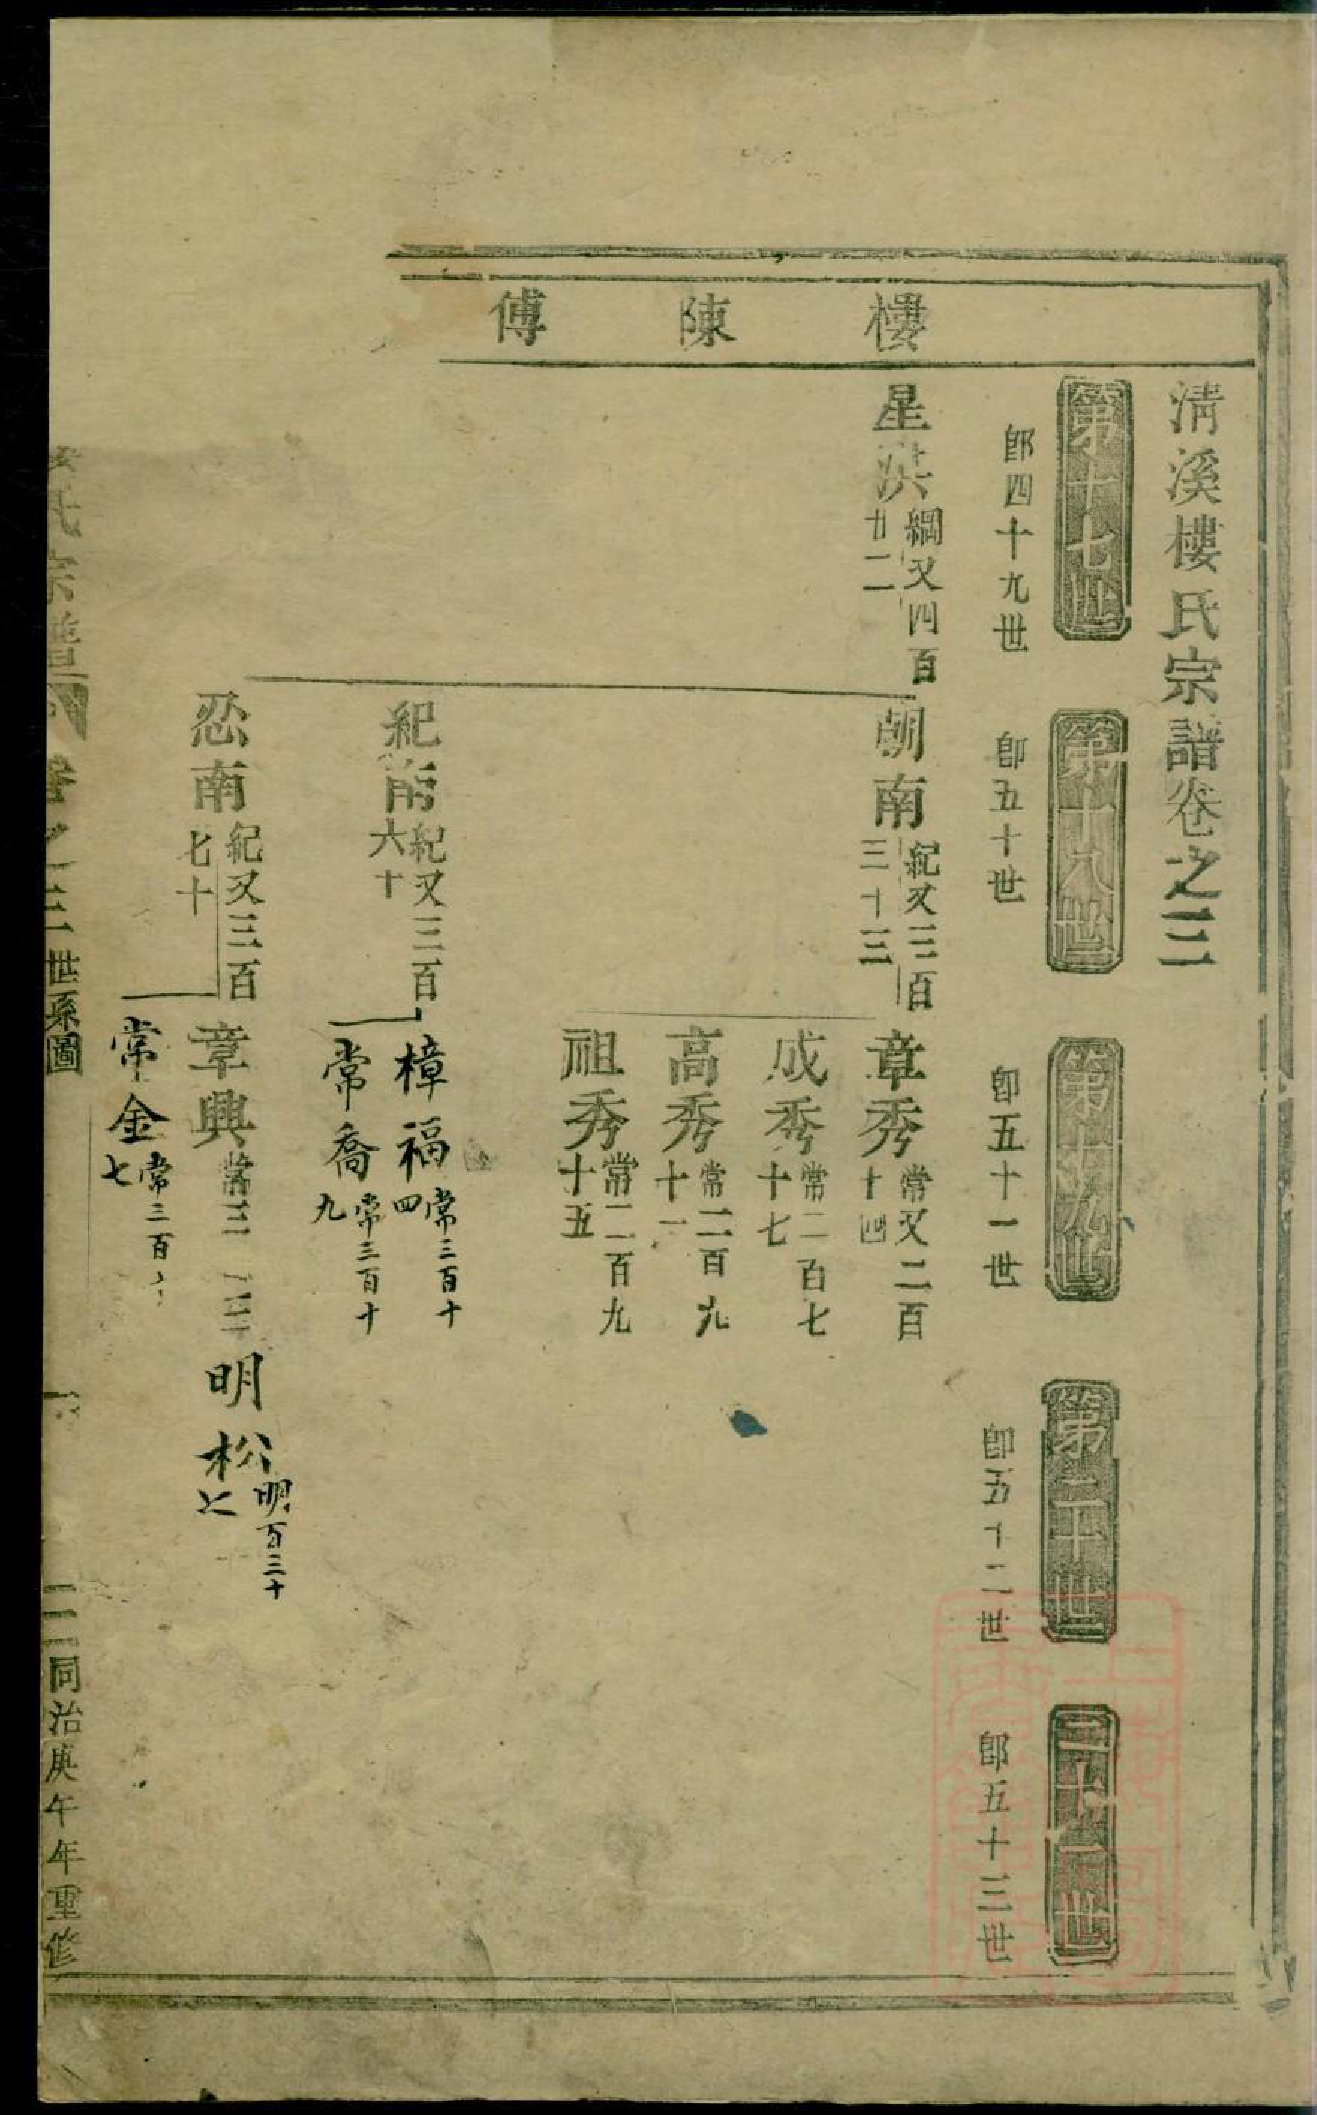 清溪樓氏宗譜卷之三
第十七世
卽四十九世
第十八世
卽五十世
第十九世
卽五十一世
第二十世
卽五十二世
二十一世
卽五十三世
樓
陳
傅
星洪
綱又四百
廿二
朝南
紀又三百
三十三
章秀
常又二百
十四
成秀
常二百七
十七
高秀
常二百九
十一
祖秀
常二百九
十五
紀南
紀又三百
六十
樟福
常三百十
四
常喬
常三百十
九
忍南
紀又三百
七十
章興
常三
明松
明百三十
七
常金
常三百
七
氏宗譜
卷之三 世系圖
二 同治庚午年重修